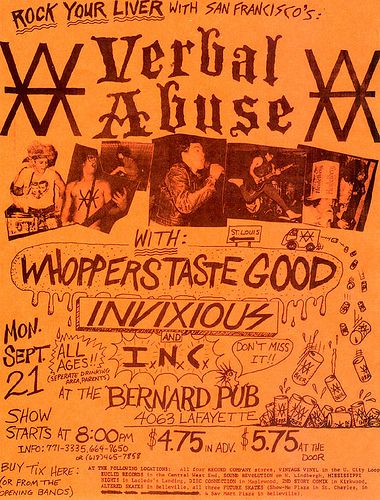 ROCK YOUR LIVER WITH SAN FRANCISCO'S:
Verbal
Abuse
WITH:
ST. LOUIS
WHOPPERS TASTE GOOD
INVIXIOUS
AND
I.N.C.
MON.
SEPT.
21
ALL
AGES!!
(SEPERATE DRINKING
AREA, PARENTS)
DON'T MISS
IT!!
AT THE BERNARD PUB
4063 LAFAYETTE
SHOW
STARTS AT 8:00PM
$4.75 IN ADV. $5.75 AT THE DOOR
INFO: 771-3335, 664-8650
OR (618) 465-7858
BUY TIX HERE:
(OR FROM THE
OPENING BANDS)
AT THE FOLLOWING LOCATIONS: All four RECORD COMPANY stores, VINTAGE VINYL in the U. City Loop
EUCLID RECORDS in the Central West End, SOUND REVOLUTION on N. Lindbergh, MISSISSIPPI
NIGHTS in Laclede's Landing, DISC CONNECTION in Maplewood, 2ND STORY COMIX in Kirkwood,
ALTERED SKATES in Belleville, all three FUTURE SKATES (Show-Me Plaza in St. Charles,
& Sav Mart Plaza in Belleville)